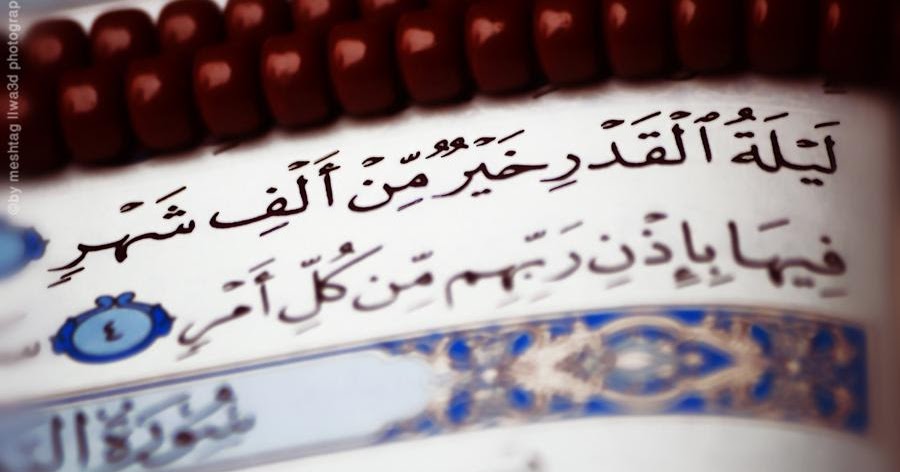 ©by meshtag llwa3d photograp
لَيْلَةُ ٱلْقَدْرِ خَيْرٌ مِّنْ أَلْفِ شَهْرٍ
فِيهَا بِإِذْنِ رَبِّهِم مِّن كُلِّ أَمْرٍ ٤
سُورَةُ